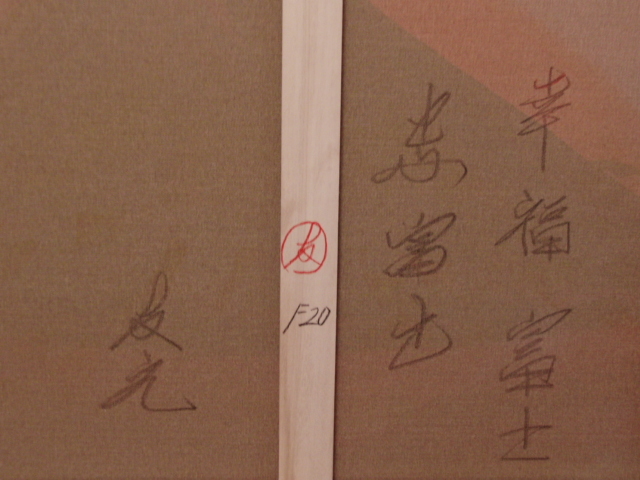 幸福富士
赤富士
友
F20
友元